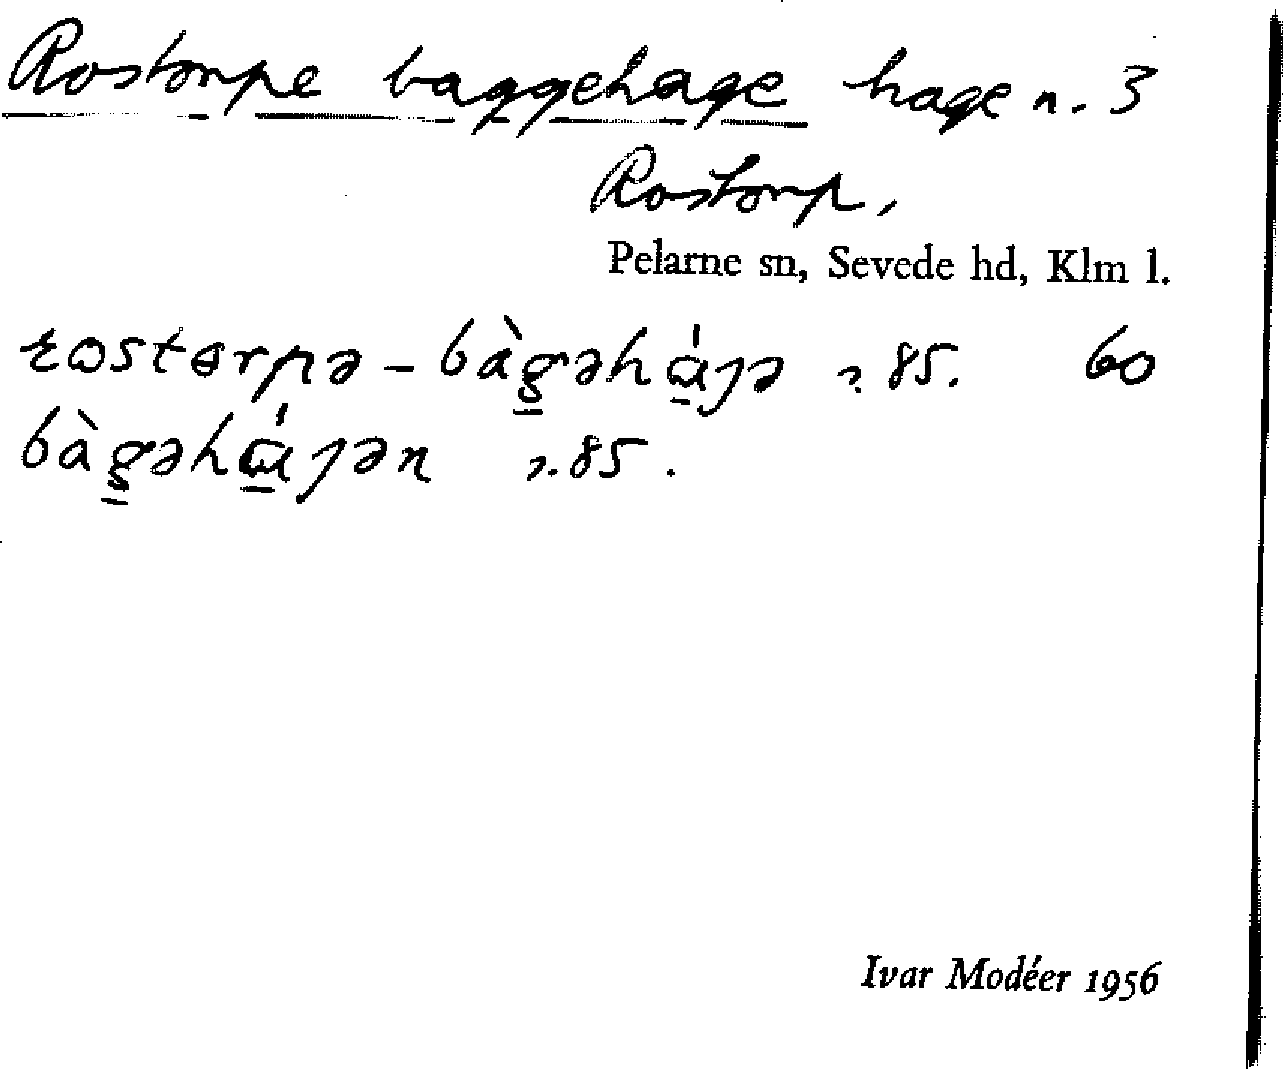 Rostorpe baggehage hage n. 3
Rostorp,
Pelarne sn, Sevede hd, Klm l.
rostorpə - bàgəhɑ́ȷə 85. 60
bàgəhɑ́ȷən 85.
Ivar Modéer 1956